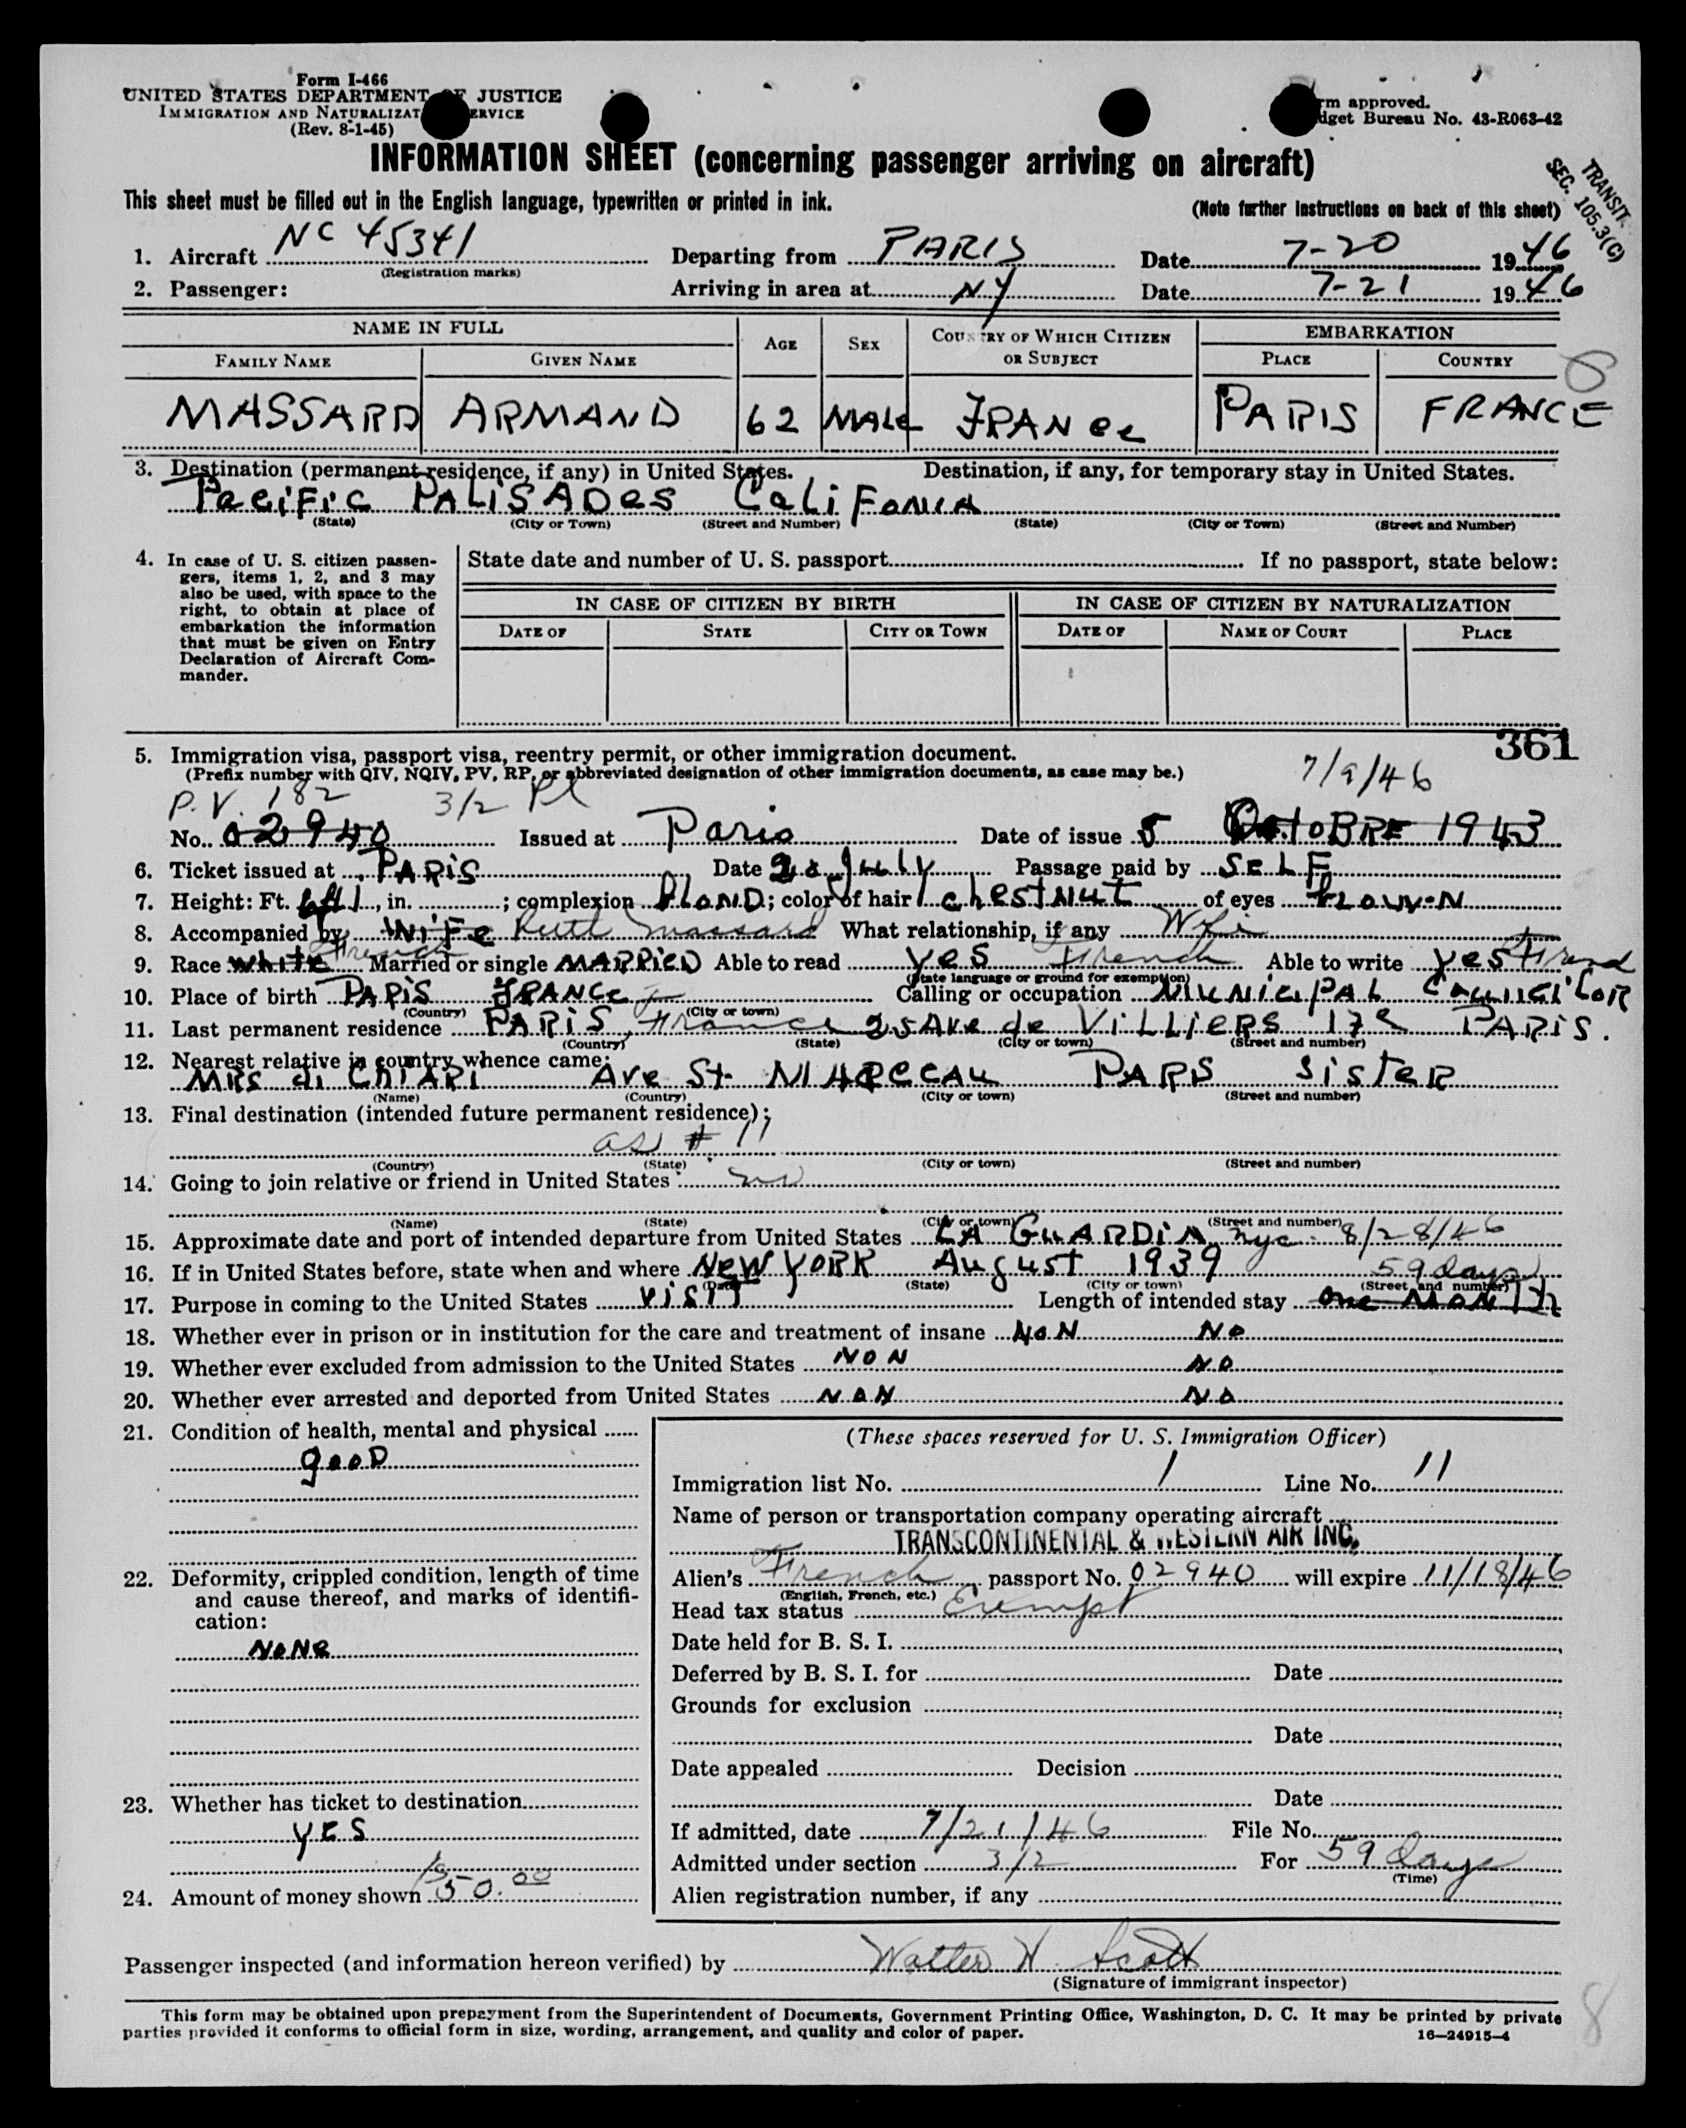 Form I-466
UNITED STATES DEPARTMENT OF JUSTICE
IMMIGRATION AND NATURALIZATION SERVICE
(Rev. 8-1-45)
Form approved.
Budget Bureau No. 43-R063-42
INFORMATION SHEET (concerning passenger arriving on aircraft)
TRANSIT
SEC. 105.3(C)
This sheet must be filled out in the English language, typewritten or printed in ink.
(Note further instructions on back of this sheet)
1. Aircraft NC 45341 Departing from PARIS Date 7-20 1946
(Registration marks)
2. Passenger: Arriving in area at NY Date 7-21 1946
NAME IN FULL AGE SEX COUNTRY OF WHICH CITIZEN OR SUBJECT EMBARKATION
FAMILY NAME GIVEN NAME PLACE COUNTRY
8
MASSARD ARMAND 62 MALE FRANCE PARIS FRANCE
3. Destination (permanent residence, if any) in United States. Destination, if any, for temporary stay in United States.
PACIFIC PALISADES CALIFONIA
(State) (City or Town) (Street and Number) (State) (City or Town) (Street and Number)
4. In case of U. S. citizen passengers, items 1, 2, and 3 may also be used, with space to the right, to obtain at place of embarkation the information that must be given on Entry Declaration of Aircraft Commander.
State date and number of U. S. passport If no passport, state below:
IN CASE OF CITIZEN BY BIRTH IN CASE OF CITIZEN BY NATURALIZATION
DATE OF STATE CITY OR TOWN DATE OF NAME OF COURT PLACE
361
5. Immigration visa, passport visa, reentry permit, or other immigration document.
(Prefix number with QIV, NQIV, PV, RP, or abbreviated designation of other immigration documents, as case may be.)
P.V. 182 3/2 Pl 7/9/46
No. 02940 Issued at Paris Date of issue 5 OctoBRE 1943
6. Ticket issued at PARIS Date 20 July Passage paid by SELF
7. Height: Ft. 6ft 1, in. ; complexion BLOND; color of hair chestnut of eyes BROWN
8. Accompanied by Wife Ruth Massard What relationship, if any Wife
9. Race white French Married or single MARRIED Able to read yes French Able to write yes French
(State language or ground for exemption)
10. Place of birth PARIS FRANCE Calling or occupation MUNICIPAL COUNCILOR
(Country) (City or town)
11. Last permanent residence PARIS, France 25 Ave de VILLIERS 17e PARIS.
(Country) (State) (City or town) (Street and number)
12. Nearest relative in country whence came:
MRS di CHIAPI Ave St MARCEAU PARS SISTER
(Name) (Country) (City or town) (Street and number)
13. Final destination (intended future permanent residence);
as # 11
(Country) (State) (City or town) (Street and number)
14. Going to join relative or friend in United States : no
(Name) (State) (City or town) (Street and number)
15. Approximate date and port of intended departure from United States LA GUARDIA nyc. 8/28/46
16. If in United States before, state when and where NEW YORK August 1939
(Date) (State) (City or town) (Street and number)
59 days
17. Purpose in coming to the United States VISIT Length of intended stay one MONTH
18. Whether ever in prison or in institution for the care and treatment of insane NON NO
19. Whether ever excluded from admission to the United States NON NO
20. Whether ever arrested and deported from United States NON NO
21. Condition of health, mental and physical
good
22. Deformity, crippled condition, length of time and cause thereof, and marks of identification:
NONE
23. Whether has ticket to destination
YES
24. Amount of money shown 150.00
(These spaces reserved for U. S. Immigration Officer)
Immigration list No. 1 Line No. 11
Name of person or transportation company operating aircraft
TRANSCONTINENTAL & WESTERN AIR INC.
Alien's French passport No. 02940 will expire 11/18/46
(English, French, etc.)
Head tax status Exempt
Date held for B. S. I.
Deferred by B. S. I. for Date
Grounds for exclusion
Date
Date appealed Decision
Date
If admitted, date 7/21/46 File No.
Admitted under section 3/2 For 59 days
(Time)
Alien registration number, if any
Passenger inspected (and information hereon verified) by Walter H Scott
(Signature of immigrant inspector)
This form may be obtained upon prepayment from the Superintendent of Documents, Government Printing Office, Washington, D. C. It may be printed by private
parties provided it conforms to official form in size, wording, arrangement, and quality and color of paper.
16—24915-4
8